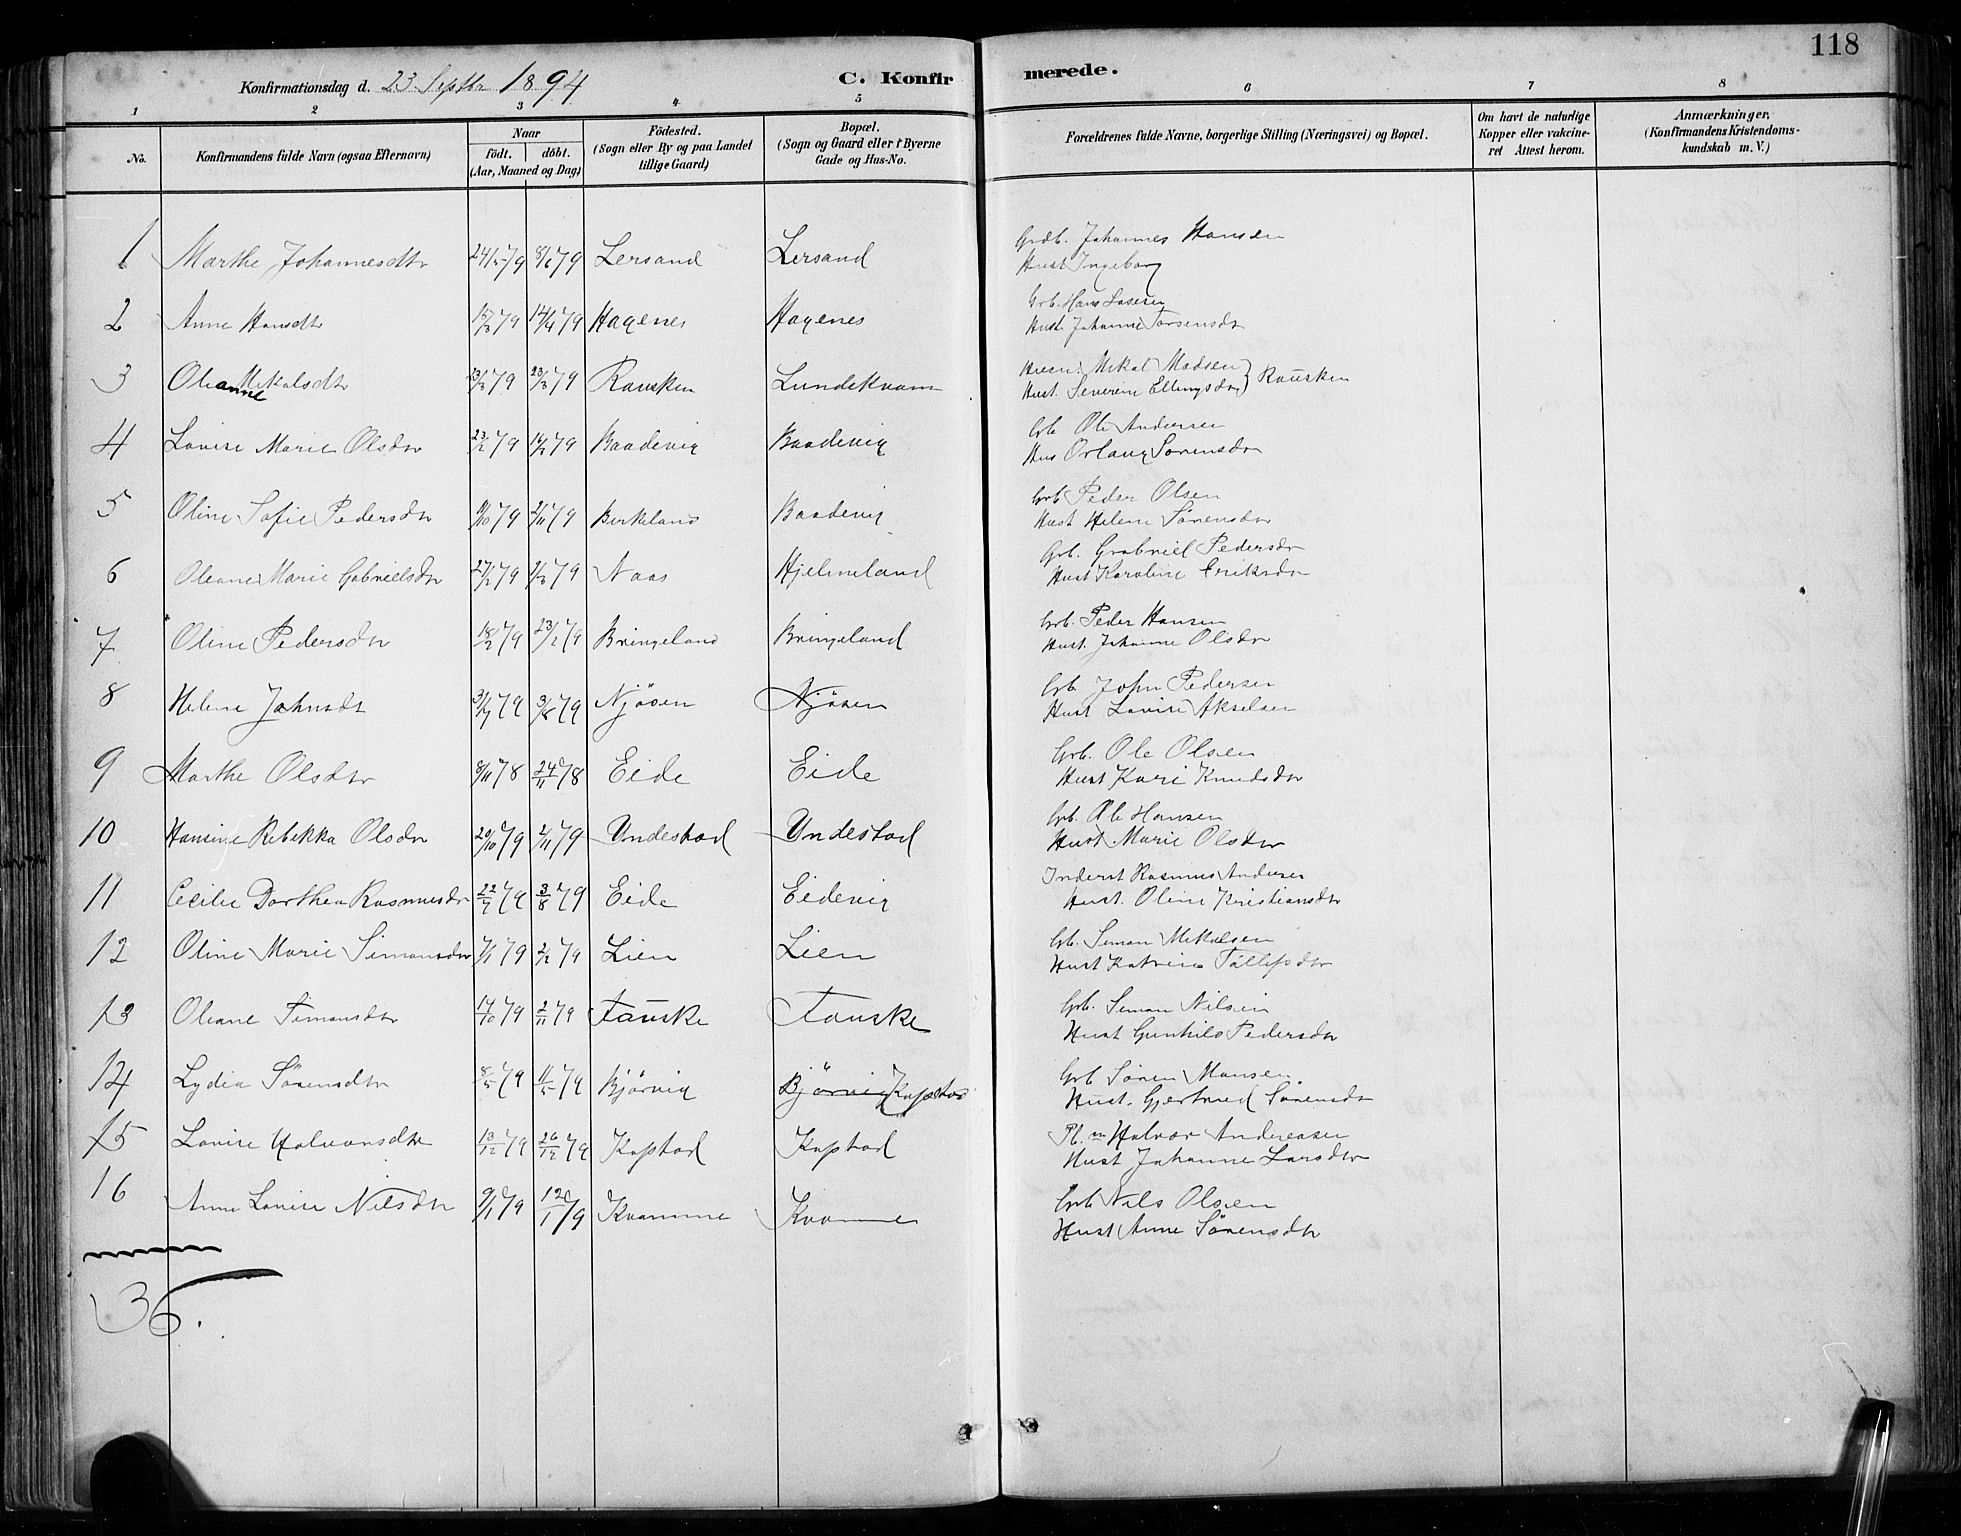 118
Konfirmationsdag d. 23 Septbr 1894
C. Konfirmerede.
1 2 3 4 5 6 7 8
No.
Konfirmandens fulde Navn (ogsaa Efternavn)
Naar
födt. döbt.
(Aar, Maaned og Dag)
Födested.
(Sogn eller By og paa Landet
tillige Gaard)
Bopæl.
(Sogn og Gaard eller i Byerne
Gade og Hus-No.
Forældrenes fulde Navne, borgerlige Stilling (Næringsvei) og Bopæl.
Om havt de naturlige
Kopper eller vakcine-
ret Attest herom.
Anmærkninger.
(Konfirmandens Kristendoms-
kundskab m. V.)
1 Marthe Johannesdtr 24/5 79 8/6 79 Lersand Lersand Grdb. Johannes Hansen
Hust Ingeborg
2 Anne Hansdtr 15/3 79 14/4 79 Hagenes Hagenes Grb. Hans
Hust. Johanne
3 Oleanne Mikalsdtr 79 23/3 79 Rausken Lundekvam Husm. Mikal Madsen } Rausken
Hust. Severine Ellingsdtr
4 Lovise Marie Olsdtr 23/2 79 79 Baadevig Baadevig Grb Ole Andersen
Hus Orlaug Sørensdtr
5 Oline Sofie Pedersdtr 79 2/11 79 Birkeland Baadevig Grb Peder Olsen
Hust Helene Sörensdtr
6 Oleane Marie Gabrielsdtr 27/2 79 79 Naas Hjelmeland Grb. Grabriel Pedersdtr
Hust Karoline Eriksdtr
7 Oline Pedersdtr 18/2 79 23/2 79 Bringeland Bringeland Grb. Peder Hansen
Hust. Johanne Olsdtr
8 Helene Johnsdtr 79 3/8 79 Njøsen Njøsen Grb. John Pedersen
Hust Lovise Akselsen
9 Marthe Olsdtr 8/11 78 24/11 78 Eide Eide Grb. Ole Olsen
Hust Kari Knudsdtr
10 Hansine Rebekka Olsdtr 20/10 79 2/11 79 Undestad Undestad Grb. Ole Hansen
Hust Marie Olsdtr
11 Cecilie Dorthea Rasmusdtr 22/7 79 3/8 79 Eide Eidevig Inderst Rasmus Andersen
Hust. Oline Kristiansdtr
12 Oline Marie Simonsdtr 7/1 79 2/2 79 Lien Lien Grb. Simon Mikalsen
Hust Katrine Tollefsdtr
13 Oleane Simonsdtr 17/10 79 2/11 79 Fauske Fauske Grb. Simon Nilsen
Hust Gunhild Pedersdtr
14 Lydia Sörensdtr 8/5 79 11/5 79 Bjørvig Bjørvig Kapstad Grb Sören Monsen
Hust. Gjertrud Sörensdtr
15 Lovise Halvorsdtr 13/12 79 26/12 79 Kapstad Kapstad Pl.m Halvor Andreasen
Hust Johanne Larsdtr
16 Anne Lovise Nilsdtr 9/1 79 12/1 79 Kvamme Kvamme Grb Nils Olsen
Hust Anne Sörensdtr
36.